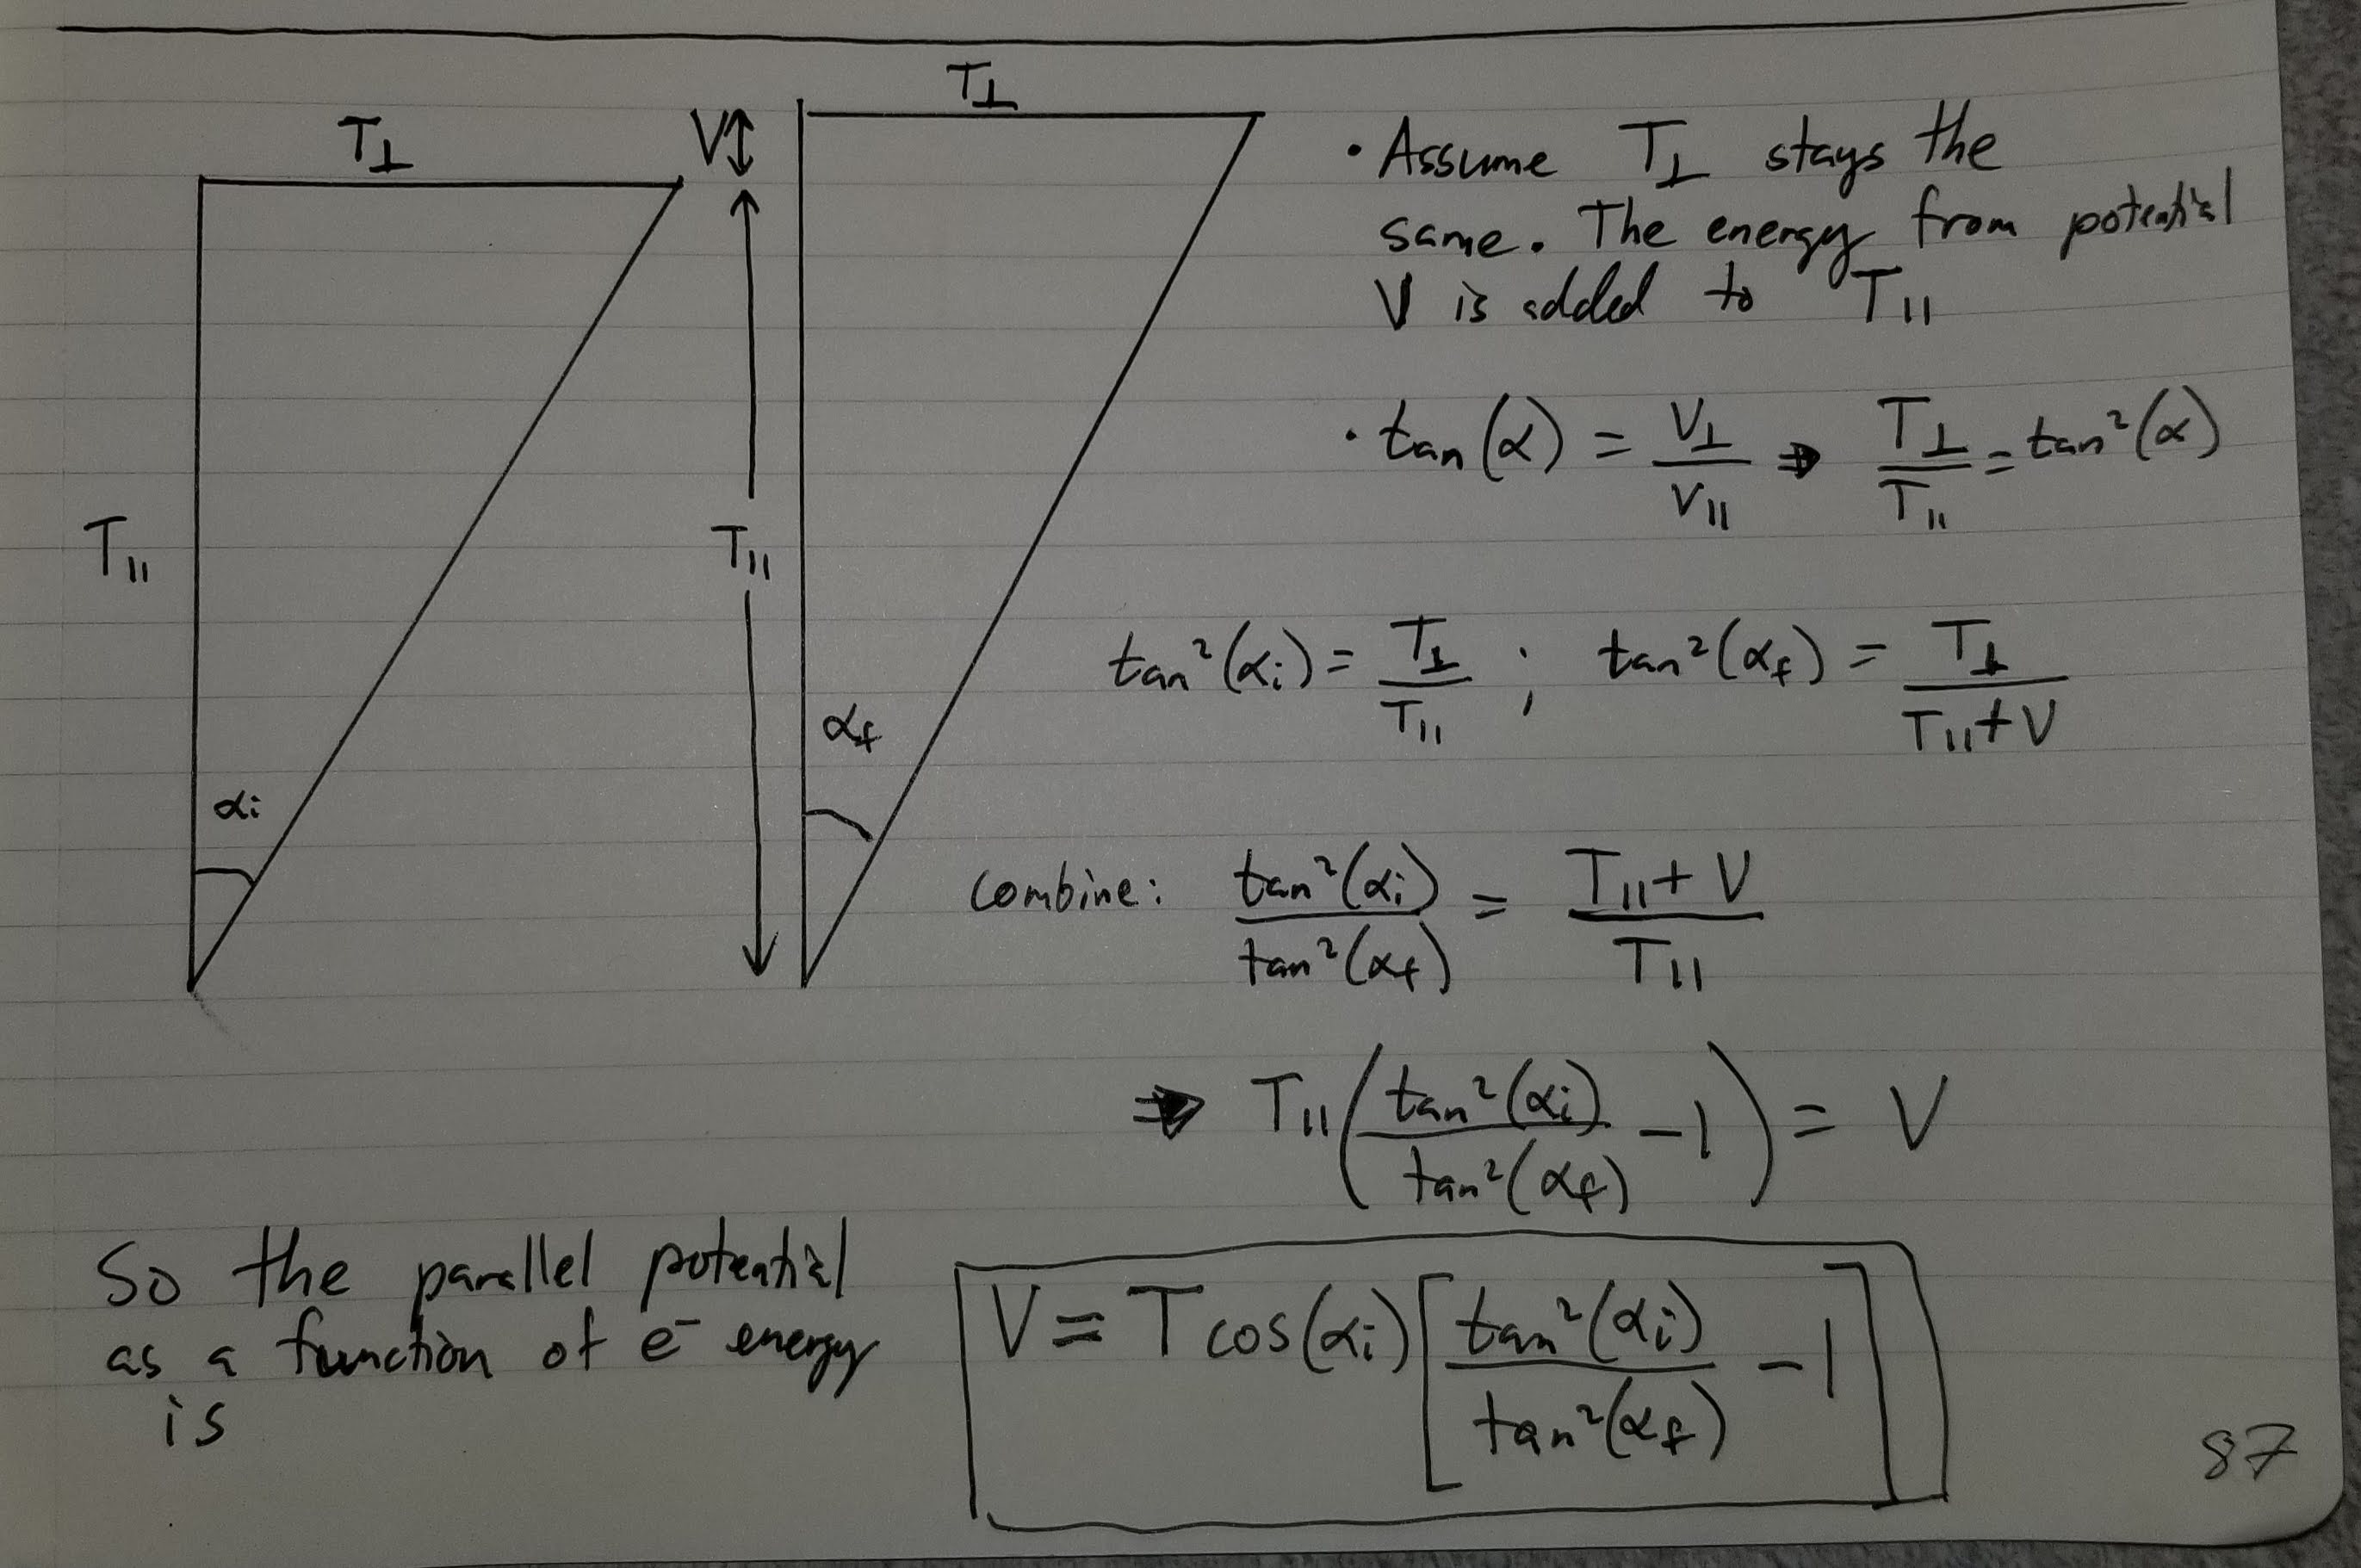 T⊥
T∥
αi
V↕
T⊥
T∥
αf
• Assume T⊥ stays the
same. The energy from potential
V is added to T∥
• tan(α) = V⊥/V∥ ⇒ T⊥/T∥ = tan²(α)
tan²(αi) = T⊥/T∥ ; tan²(αf) = T⊥/(T∥+V)
combine: tan²(αi)/tan²(αf) = (T∥+V)/T∥
⇒ T∥(tan²(αi)/tan²(αf) −1) = V
So the parallel potential
as a function of e⁻ energy
is
V = T cos(αi)[tan²(αi)/tan²(αf) −1]
87